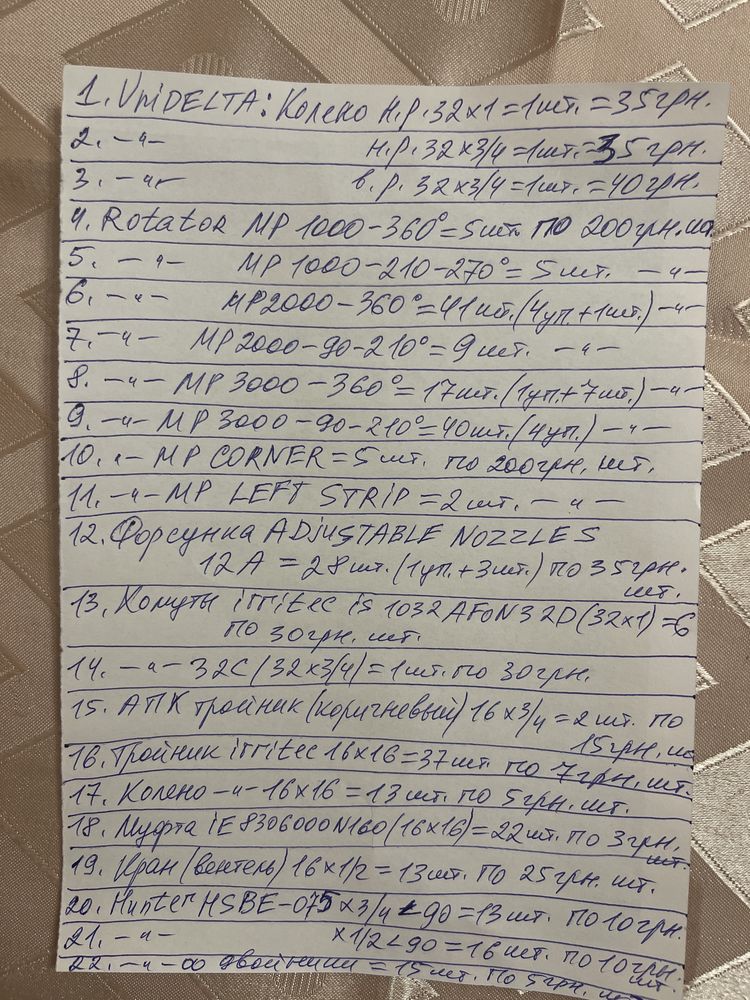 1. UniDELTA: Колено н.р. 32х1 = 1шт. = 35грн.
2. –"– н.р. 32х3/4 = 1шт. = 35грн.
3. –"– в.р. 32х3/4 = 1шт. = 40грн.
4. Rotator MP 1000-360° = 5шт. по 200грн. шт.
5. –"– MP 1000-210-270° = 5шт. –"–
6. –"– MP2000-360° = 41шт. (4уп.+1шт.) –"–
7. –"– MP2000-90-210° = 9шт. –"–
8. –"– MP 3000-360° = 17шт. (1уп.+7шт.) –"–
9. –"– MP 3000-90-210° = 40шт. (4уп.) –"–
10. –"– MP CORNER = 5шт. по 200грн. шт.
11. –"– MP LEFT STRIP = 2шт. –"–
12. Форсунка ADJUSTABLE NOZZLES
12A = 28шт. (1уп.+3шт.) по 35грн.
шт.
13. Хомуты irritec is 1032AFoN32D (32х1) = 6
по 30грн. шт.
14. –"– 32C (32х3/4) = 1шт. по 30грн.
15. АПК тройник (коричневый) 16х3/4 = 2шт. по
15грн. шт.
16. Тройник irritec 16х16 = 37шт. по 7грн. шт.
17. Колено –"– 16х16 = 13шт. по 5грн. шт.
18. Муфта iE8306000N160 (16х16) = 22шт. по 3грн.
шт.
19. Кран (вентель) 16х1/2 = 13шт. по 25грн. шт.
20. Hunter HSBE-075х3/4 <90 = 13шт. по 10грн.
21. –"– х1/2 <90 = 16шт. по 10грн.
шт.
22. –"– двойники = 15шт. по 5грн. шт.